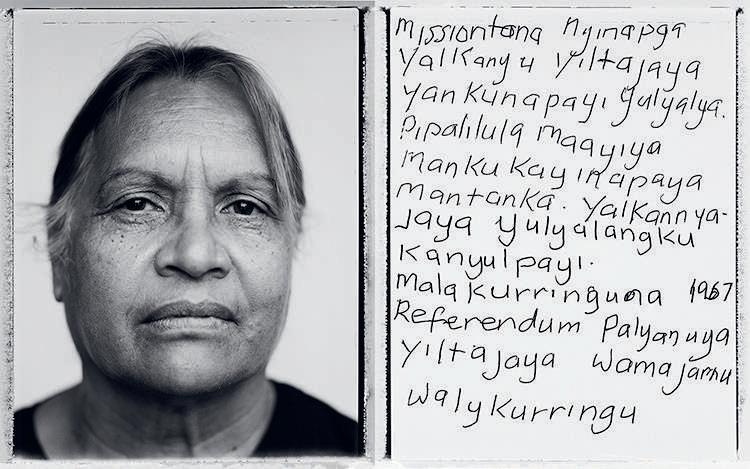 missiontana nyinapga
yalkanyu yiltajaya
yankunapayi yulyalya.
pipalilula maayiya
manku kayinapaya
mantanka. yalkannya-
jaya yulyalangku
kanyulpayi.
mala kurringuna 1967
Referendum palyanuya
yiltajaya wamajarnu
walykurringu